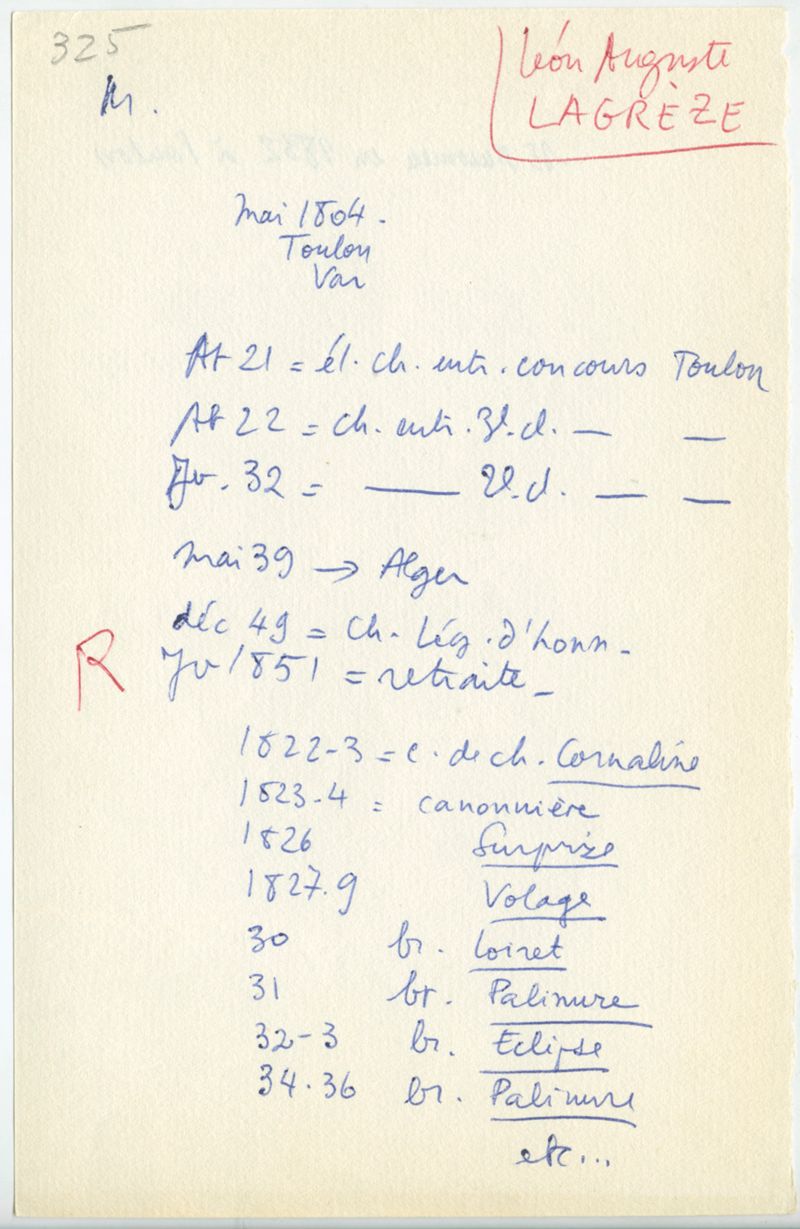 325
M.
Léon Auguste
LAGRÈZE
Mai 1804.
Toulon
Var
At 21 = él. ch. entr. concours Toulon
At 22 = ch. entr. 3e.cl. — —
Jv. 32 = — 2e.cl. — —
Mai 39 → Alger
déc 49 = Ch. Lég. d'honn.
R Jv 1851 = retraite
1822-3 = c. de ch. Cornaline
1823.4 = canonnière
1826 Surprize
1827.9 Volage
30 br. Loiret
31 br. Palinure
32-3 br. Eclipse
34.36 br. Palinure
etc...